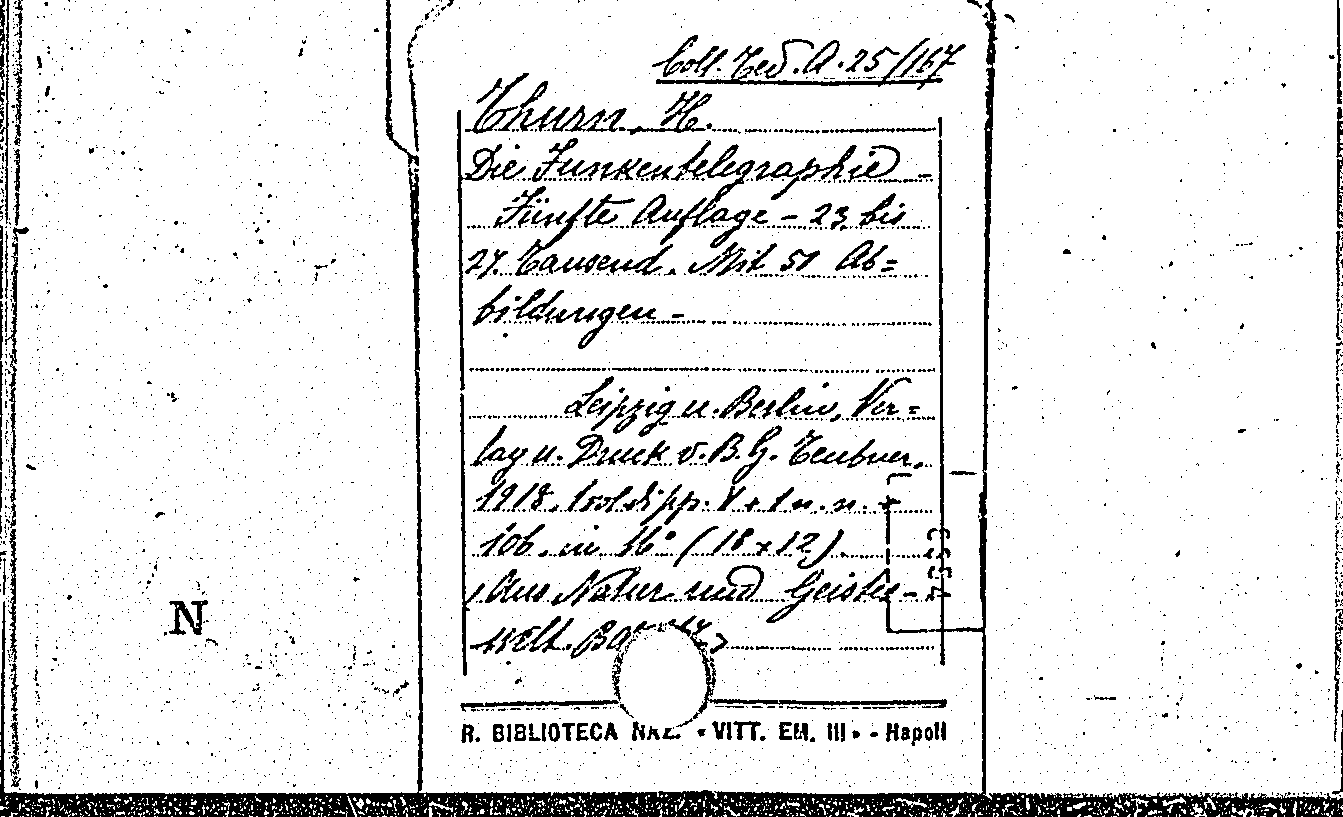 Coll. Ted. A. 25/167
Thurn, H.
Die Funkentelegraphie -
Fünfte Auflage - 23 bis
27. Tausend. Mit 51 Ab=
bildungen -
Leipzig u. Berlin, Ver=
lag u. Druck v. B. G. Teubner,
1918. pp. 1 n. n. +
106. in 16° (18 x 12).
Aus Natur und Geistes-
welt.
N
R. BIBLIOTECA NAZ. • VITT. EM. III • - Napoli